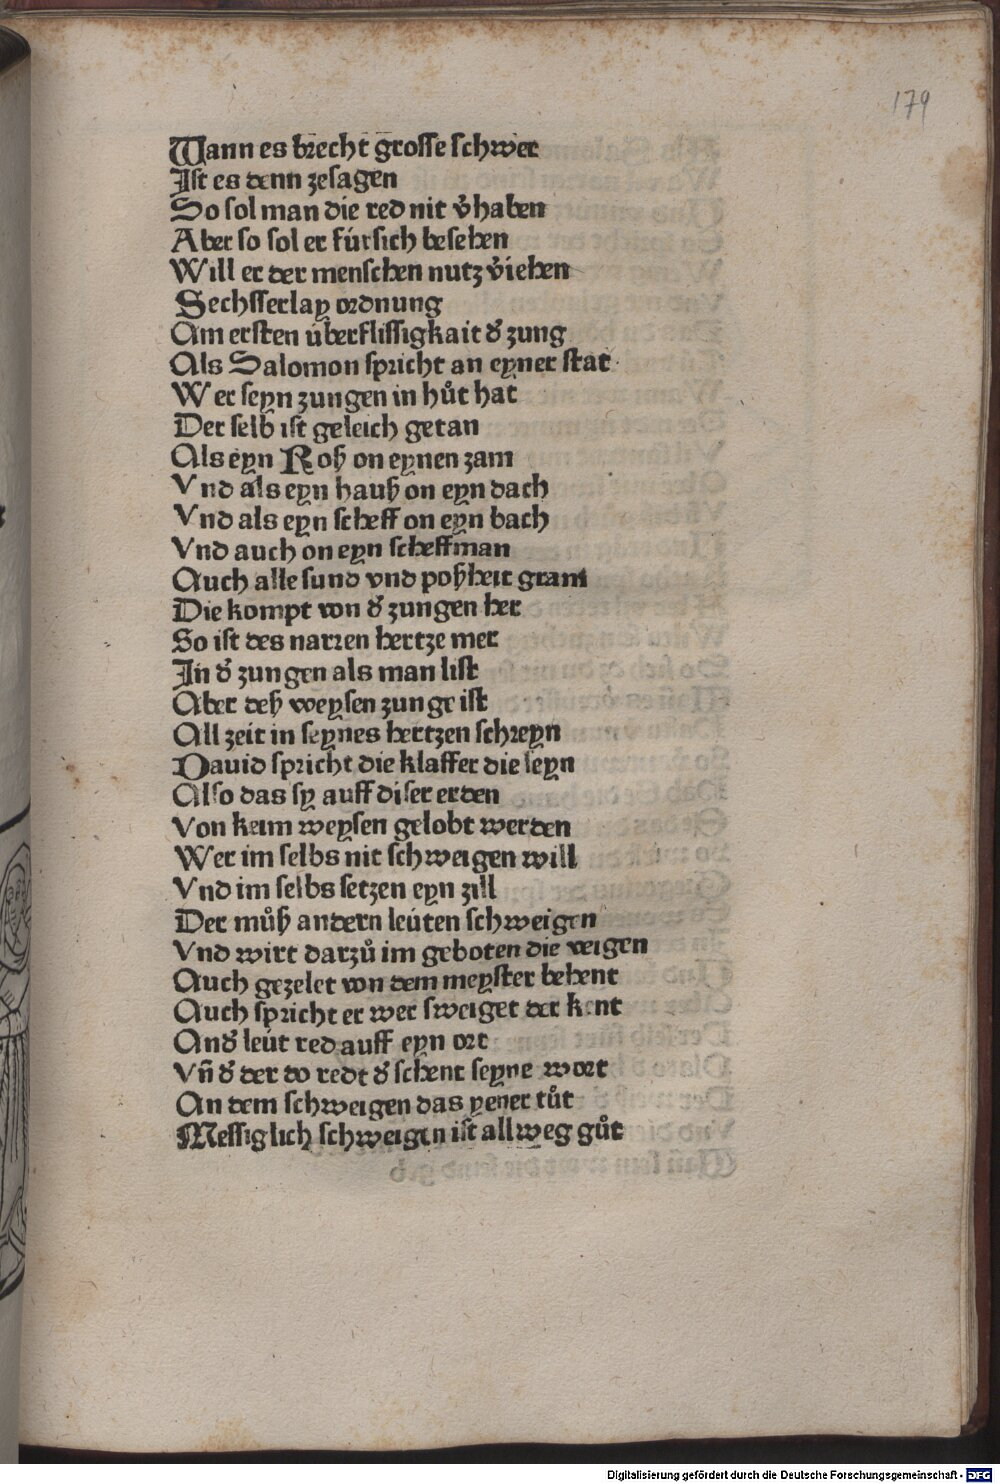 179
Wann es brecht grosse schwer
Ist es denn zesagen
So sol man die red nit v̓haben
Aber so sol er fúrsich besehen
Will er der menschen nutz v̓iehen
Sechsserlay ordnung
Am ersten úberflissigkait d̓ zung
Als Salomon spricht an eyner stat
Wer seyn zungen in hůt hat
Der selb ist geleich getan
Als eyn Roß on eynen zam
Vnd als eyn hauß on eyn dach
Vnd als eyn scheff on eyn bach
Vnd auch on eyn scheffman
Auch alle sund vnd poßheit gram
Die kompt von d̓ zungen her
So ist des narren hertze mer
In d̓ zungen als man list
Aber deß weysen zunge ist
All zeit in seynes hertzen schreyn
Dauid spricht die klaffer die seyn
Also das sy auff diser erden
Von keim weysen gelobt werden
Wer im selbs nit schweigen will
Vnd im selbs setzen eyn zill
Der můß andern leúten schweigen
Vnd wirt darzů im geboten die veigen
Auch gezelet von dem meyster behent
Auch spricht er wer sweiget der kent
And̓ leút red auff eyn ort
Vn̄ d̓ der do redt d̓ schent seyne wort
An dem schweigen das yener tůt
Messiglich schweigen ist allweg gůt
Digitalisierung gefördert durch die Deutsche Forschungsgemeinschaft - DFG